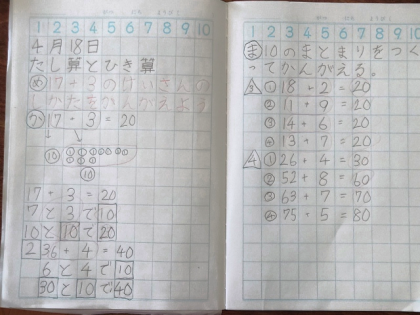 1 2 3 4 5 6 7 8 9 10
4月18日
たし算とひき算
め 17+3のけいさんの
しかたをかんがえよう
か 17+3=20
10
10
17+3=20
7と3で10
10と10で20
2 36+4=40
6と4で10
30と10で40
1 2 3 4 5 6 7 8 9 10
ま 10のまとまりをつく
ってかんがえる。
3 ① 18+2=20
② 11+9=20
③ 14+6=20
④ 13+7=20
4 ① 26+4=30
② 52+8=60
③ 63+7=70
④ 75+5=80